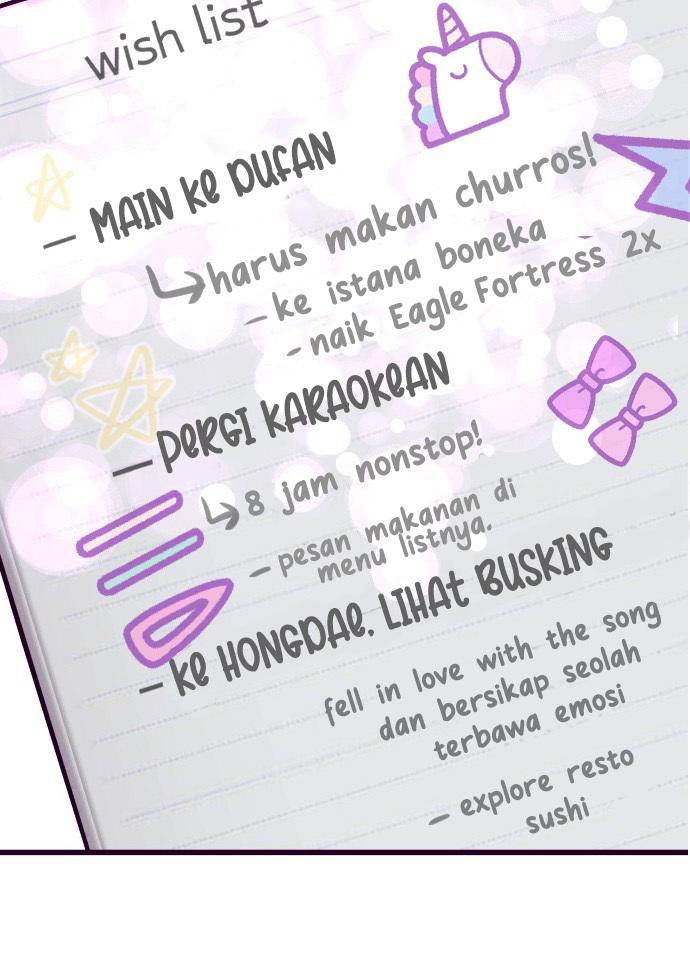 wish list
— MAIN Ke DUFAN
harus makan churros!
- ke istana boneka
- naik Eagle Fortress 2x
— PeRGI KARAOKeAN
8 jam nonstop!
- pesan makanan di
menu listnya.
- Ke HONGDAe, LIHAt BUSKING
fell in love with the song
dan bersikap seolah
terbawa emosi
- explore resto
sushi